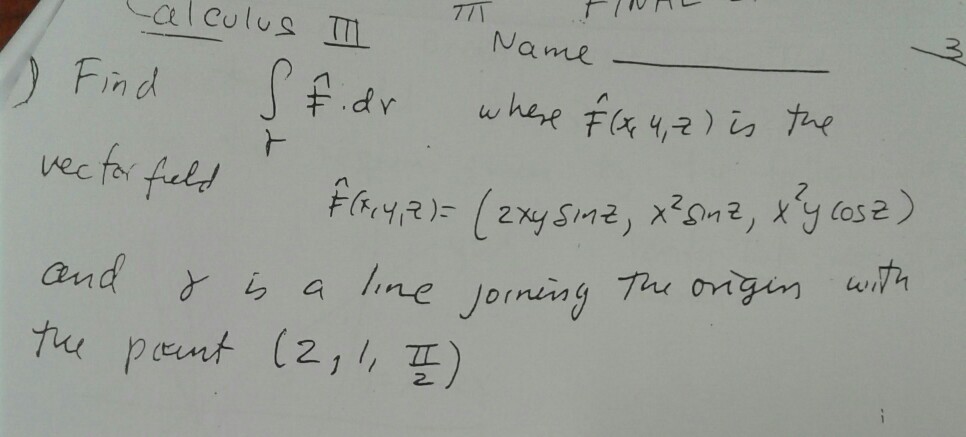 Calculus III III FINAL
Name ________ 3
) Find ∫γ F̂.dr where F̂(x, y, z) is the
vector field
F̂(x,y,z)= (2xy sinz, x² sinz, x²y cosz)
and γ is a line joining the origin with
the point (2, 1, π/2)